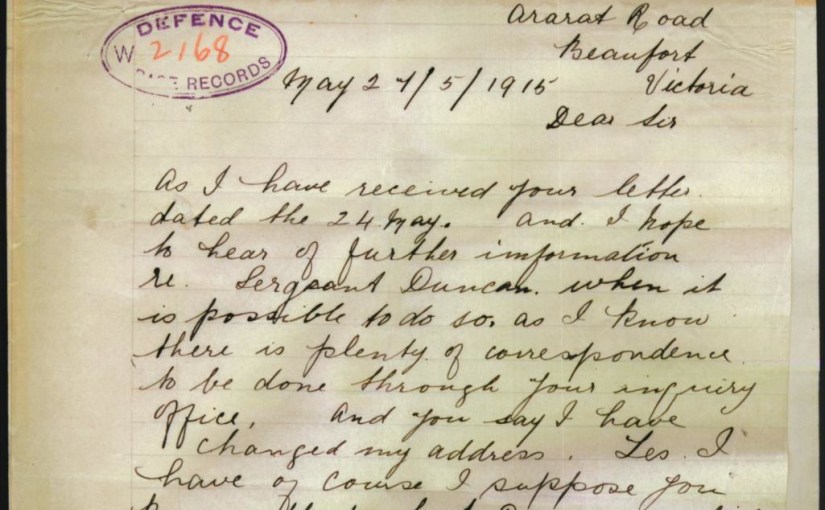 DEFENCE
W 2168
BASE RECORDS
Ararat Road
Beaufort
May 27/5/1915 Victoria
Dear Sir
As I have received your letter
dated the 24 May. And. I hope
to hear of further imformation
re. Sergeant Duncan. when it
is possible to do so. as I know
there is plenty of correspondence
to be done through your inquiry
office, And you say I have
changed my address. Yes. I
have of course I suppose you